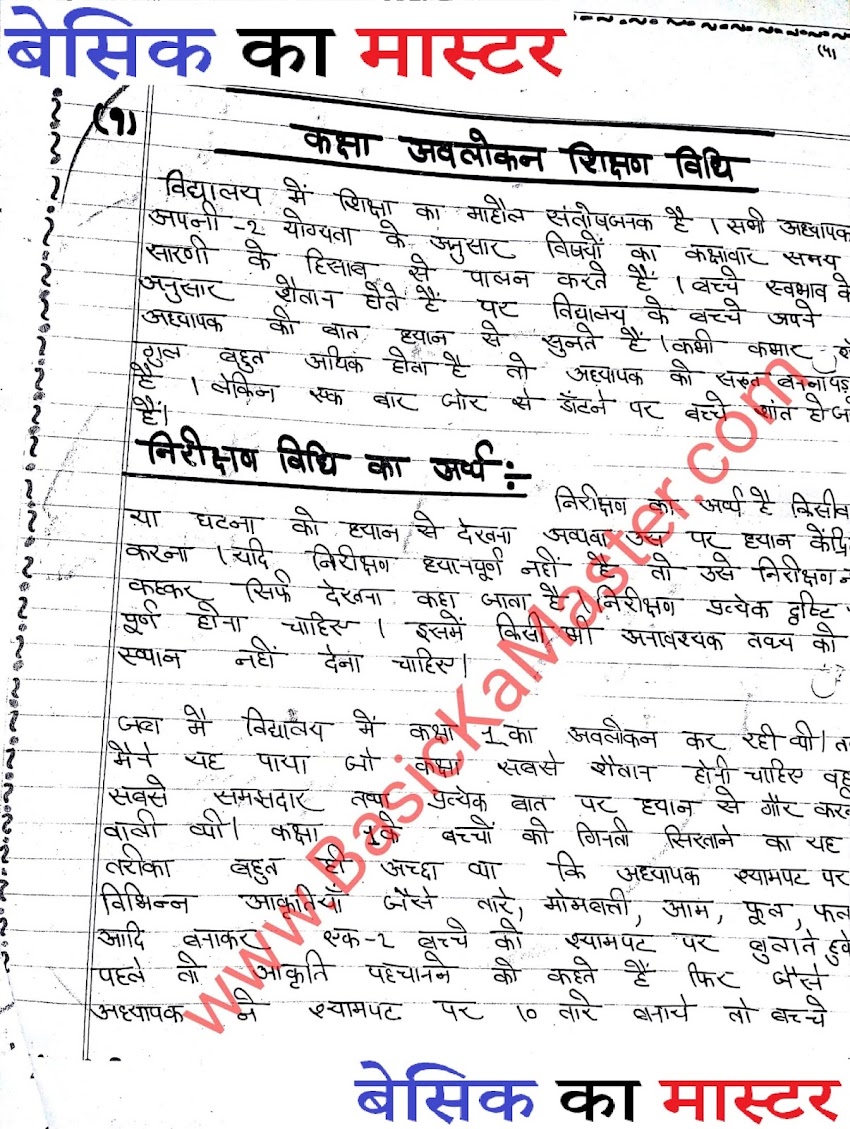 बेसिक का मास्टर
(५)
(१)
कक्षा अवलोकन शिक्षण विधि
विद्यालय में शिक्षा का माहौल संतोषजनक है । सभी अध्यापक
अपनी -2 योग्यता के अनुसार विषयों का कक्षावार समय
सारणी के हिसाब से पालन करते हैं । बच्चे स्वभाव के
अनुसार शैतान होते हैं पर विद्यालय के बच्चे अपने
अध्यापक की बात ध्यान से सुनते हैं । कभी कभार
गुल बहुत अधिक होता है तो अध्यापक को सख्त बनना पड़
है । लेकिन एक बार जोर से डाँटने पर बच्चे शांत हो जा
हैं।
निरीक्षण विधि का अर्थ :-
निरीक्षण का अर्थ है किसी व
या घटना को ध्यान से देखना अथवा उस पर ध्यान केंद्रि
करना । यदि निरीक्षण ध्यानपूर्ण नहीं है तो उसे निरीक्षण न
कहकर सिर्फ देखना कहा जाता है । निरीक्षण प्रत्येक दृष्टि
पूर्ण होना चाहिए । इसमें किसी भी अनावश्यक तथ्य को
स्थान नहीं देना चाहिए।
जब मैं विद्यालय में कक्षा 1 का अवलोकन कर रही थी। त
मैंने यह पाया जो कक्षा सबसे शैतान होनी चाहिए वह
सबसे समझदार तथा प्रत्येक बात पर ध्यान से गौर कर
वाली थी। कक्षा 1 के बच्चों को गिनती सिखाने का यह
तरीका बहुत ही अच्छा था कि अध्यापक श्यामपट पर
विभिन्न आकृतियाँ जैसे तारे, मोमबत्ती, आम, फूल, फल
आदि बनाकर एक-2 बच्चे को श्यामपट पर बुलाते हुये
पहले तो आकृति पहचानने को कहते हैं फिर जैसे
अध्यापक ने श्यामपट पर 10 तारे बनाये तो बच्चे
www.BasicKaMaster.com
बेसिक का मास्टर